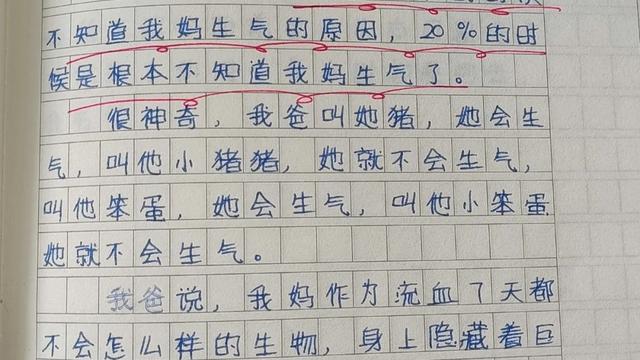 不知道我妈生气的原因，20%的时
候是根本不知道我妈生气了。
很神奇，我爸叫她猪，她会生
气，叫他小猪猪，她就不会生气，
叫他笨蛋，她会生气，叫他小笨蛋
她就不会生气。
我爸说，我妈作为流血7天都
不会怎么样的生物，身上隐藏着巨